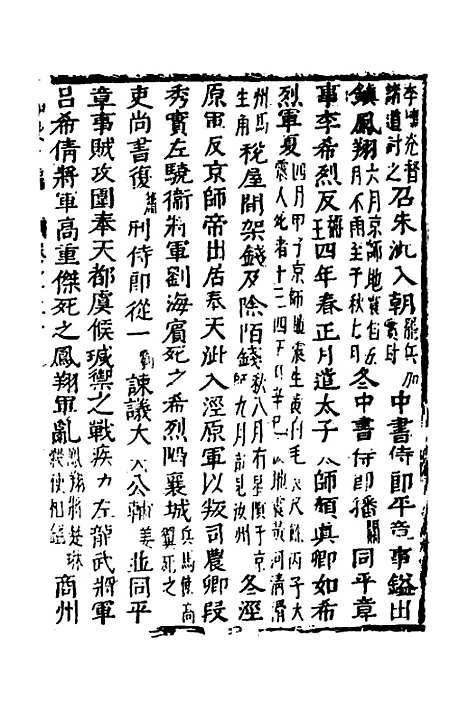 李懷光督諸道討之召朱泚入朝罷兵加實封中書侍郎平章事鎰出
鎮鳳翔六月京師地震自五月不雨至于秋七月冬中書侍郎播關同平章
事李希烈反稱王四年春正月遣太子師顏真卿如希
烈軍夏四月甲子京師地震生黃白毛尺餘丙子大震人死者十三四五月辛巳地震黃河清滑
州馬生角稅屋間架錢及除陌錢秋八月有星隕于京師九月冬涇
原軍反京師帝出居奉天泚入涇原軍以叛司農卿段
秀實左驍衛將軍劉海賓死之希烈陷襄城兵馬使高翼死之
吏尚書復蕭刑侍郎從一劉諫議大公輔姜並同平
章事賊攻圍奉天都虞候瑊禦之戰疾力左龍武將軍
呂希倩將軍高重傑死之鳳翔軍亂鳳翔將楚琳商州